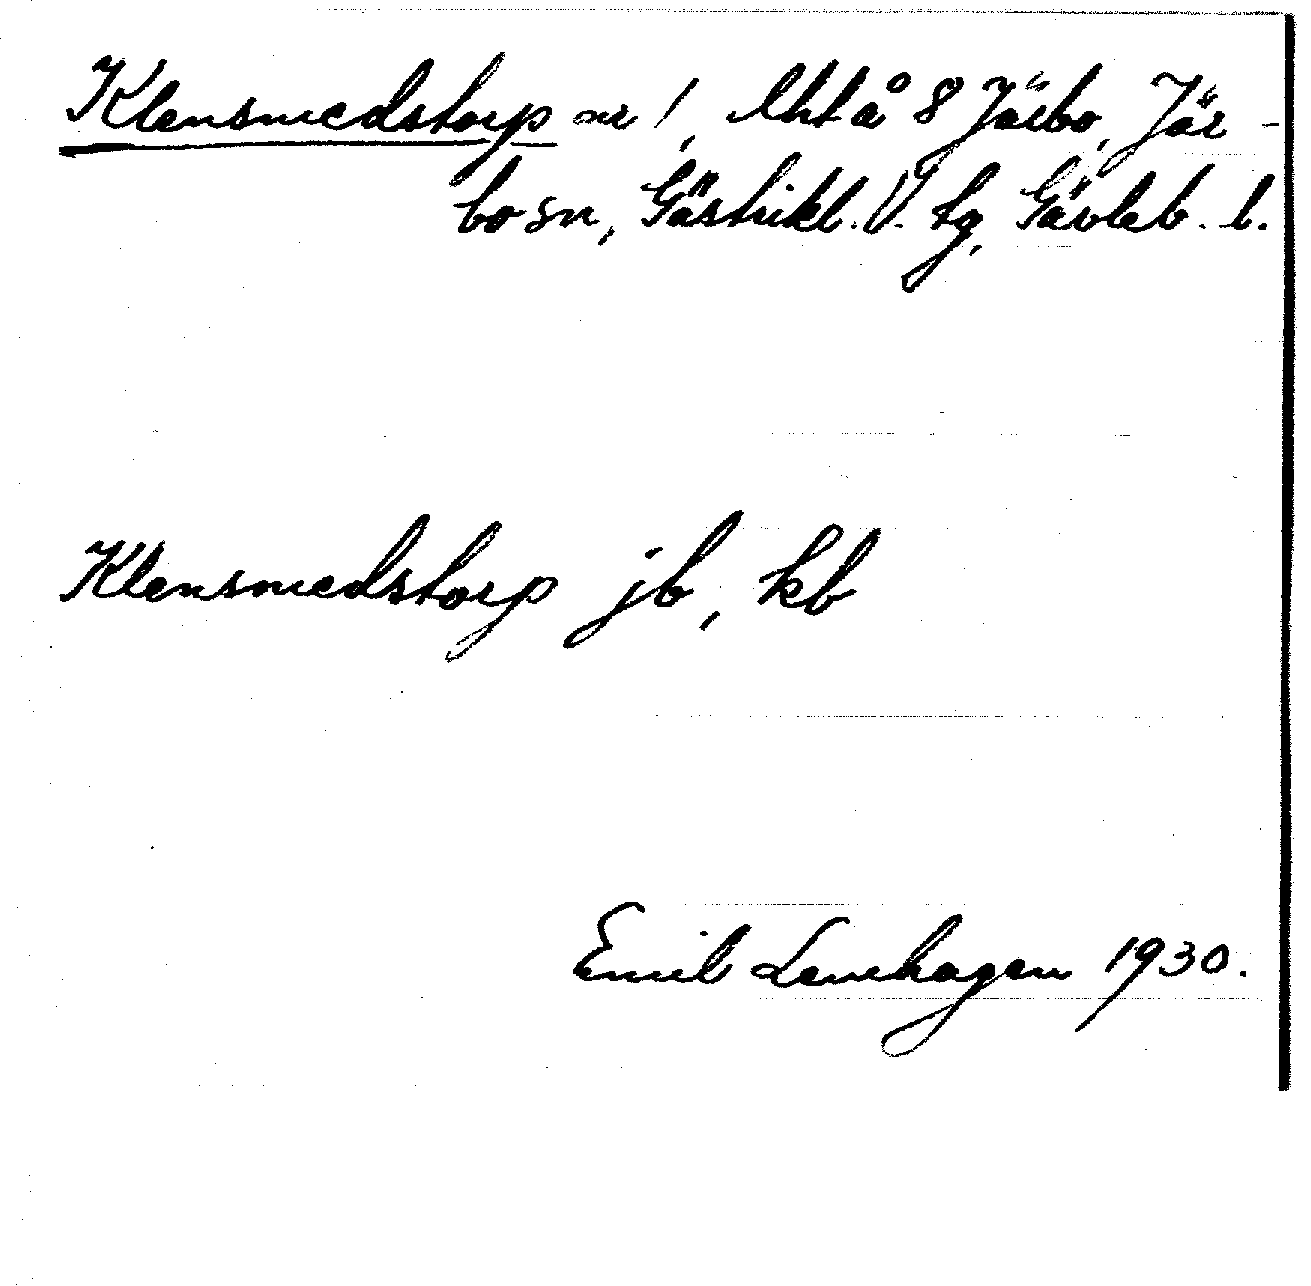 Klensmedstorp nr 1, Uht å 8 Järbo, Jär-
bo sn, Gästrikl. V. tg, Gävleb. l.
Klensmedstorp jb, kb
Emil Lenhagen 1930.